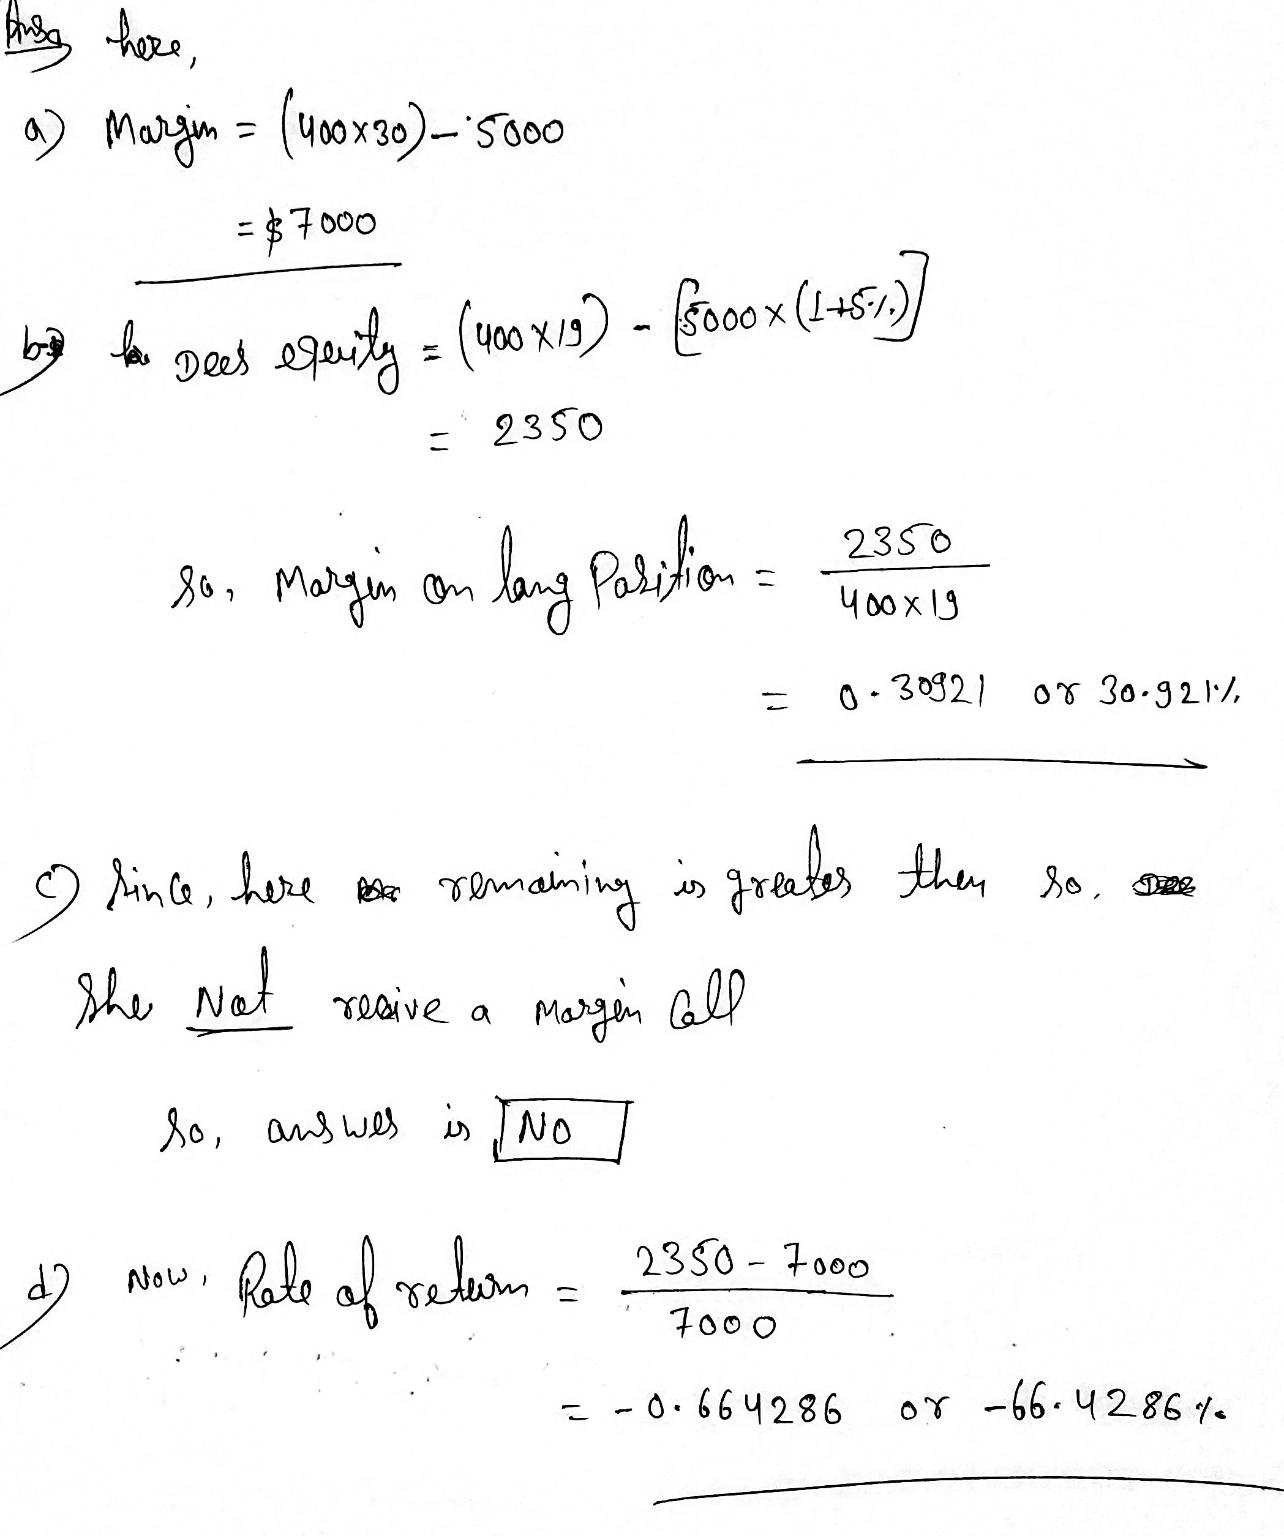 Ans here,
a) Margin = (400x30) - 5000
= $7000
b) Dees equity = (400 x 19) - [5000 x (1+5%)]
= 2350
So, Margin on long Position = 2350
400 x 19
= 0.30921 or 30.921%
c) Since, here remaining is greater then so,
She Not receive a Margin Call
So, answer is NO
d) Now, Rate of return = 2350 - 7000
7000
= -0.664286 or -66.4286%